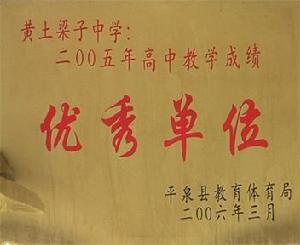 黄土梁子中学：
二00五年高中教学成绩
优秀单位
平泉县教育体育局
二00六年三月